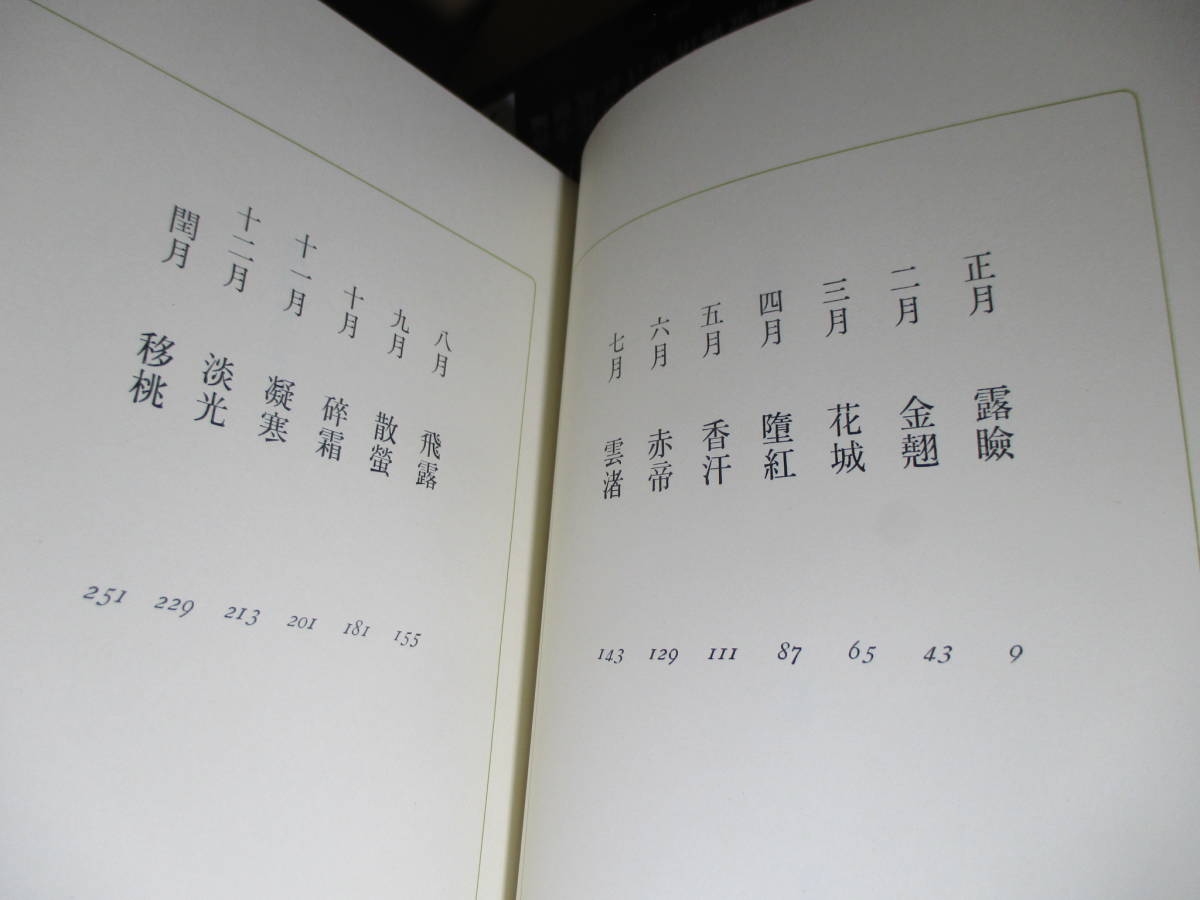 正月 露瞼 9
二月 金翹 43
三月 花城 65
四月 墮紅 87
五月 香汗 111
六月 赤帝 129
七月 雲渚 143
八月 飛露 155
九月 散螢 181
十月 碎霜 201
十一月 凝寒 213
十二月 淡光 229
閏月 移桃 251